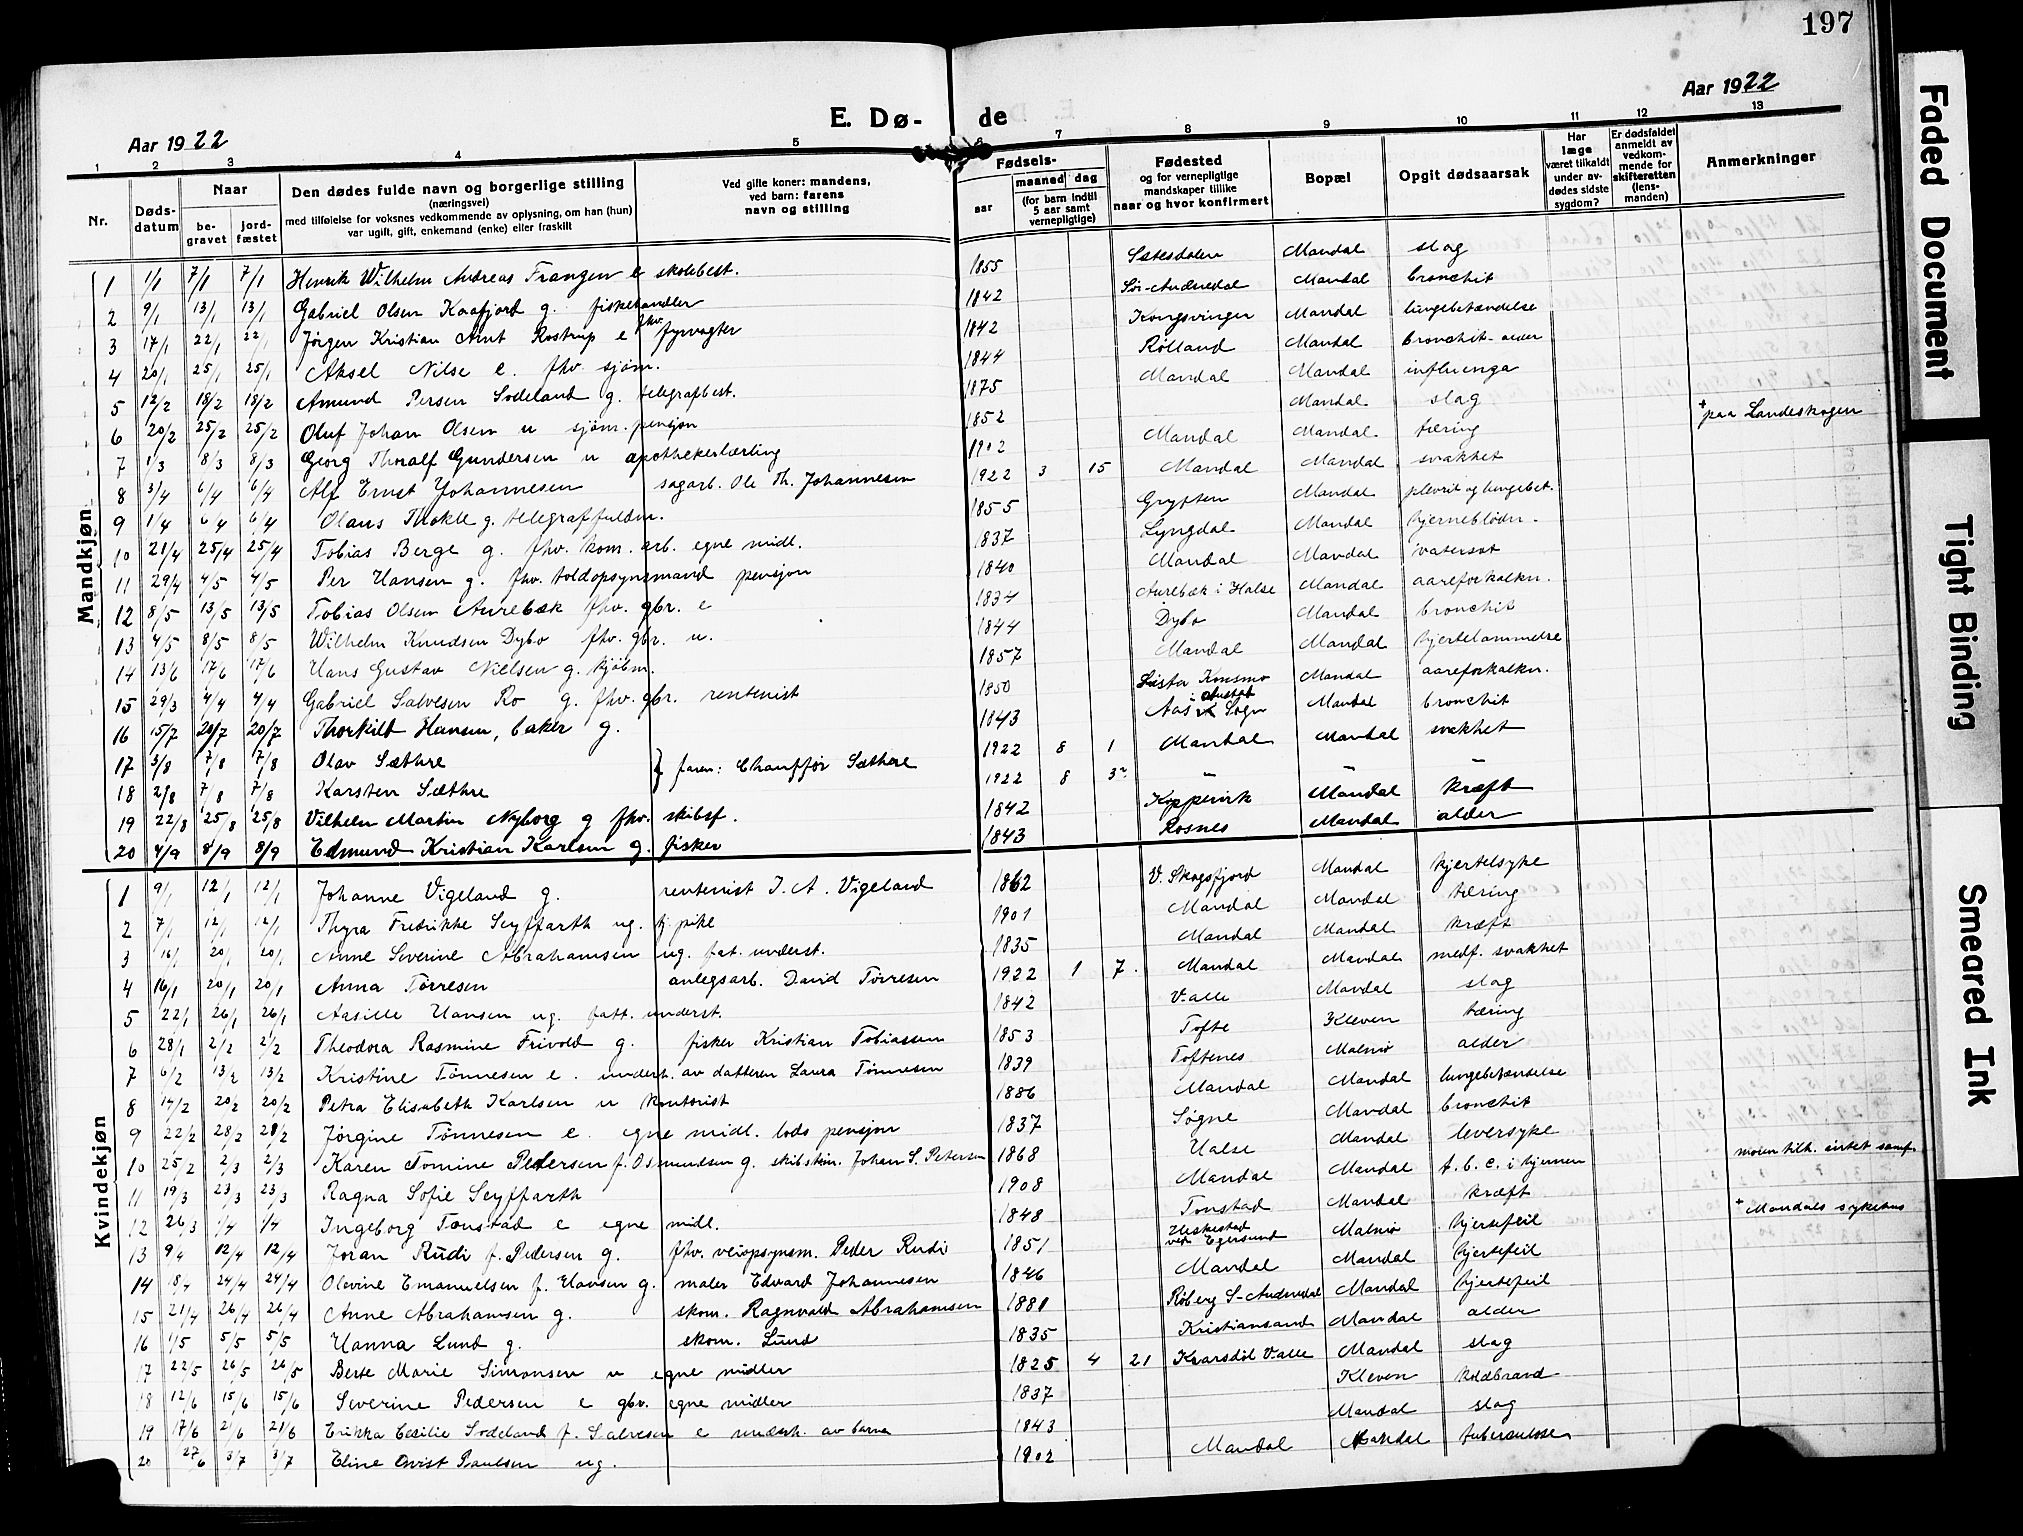 197
Aar 1922
E. Dø- de
Aar 1922
1 2 3 4 5 6 7 8 9 10 11 12 13
Nr.
Døds-
datum
Naar
be-
gravet
jord-
fæstet
Den dødes fulde navn og borgerlige stilling
(næringsvei)
med tilføielse for voksnes vedkommende av oplysning, om han (hun)
var ugift, gift, enkemand (enke) eller fraskilt
Ved gifte koner: mandens,
ved barn: farens
navn og stilling
Fødsels-
aar
maaned dag
(for barn indtil
5 aar samt
vernepligtige)
Fødested
og for vernepligtige
mandskaper tillike
naar og hvor konfirmert
Bopæl
Opgit dødsaarsak
Har
læge
været tilkaldt
under av-
dødes sidste
sygdom?
Er dødsfaldet
anmeldt av
vedkom-
mende for
skifteretten
(lens-
manden)
Anmerkninger
Mandkjøn
1 1/1 7/1 7/1 Henrik Wilhelm Andreas Frangen e skolebest. 1855 Sætesdalen Mandal slag
2 9/1 13/1 13/1 Gabriel Olsen Kaafjord g. fiskehandler 1842 Sør-Audnedal Mandal bronchit
3 17/1 22/1 22/1 Jørgen Kristian Arnt Rostrup e fhv. fyrvogter 1842 Kongsvinger Mandal lungebetændelse
4 20/1 25/1 25/1 Aksel Nilse e. fhv. sjøm. 1844 Rølland Mandal bronchit-alder
5 12/2 18/2 18/2 Amund Persen Sodeland g. telegrafbest. 1875 Mandal Mandal influenza
6 20/2 25/2 25/2 Oluf Johan Olsen u sjøm. pensjon 1852 Mandal slag
7 1/3 8/3 8/3 Georg Thoralf Gundersen u apothekerlærling 1902 Mandal Mandal tæring + paa Landeskogen
8 3/4 6/4 6/4 Alf Ernst Johannesen sagarb. Ole Th. Johannesen 1922 3 15 Mandal Mandal svakhet
9 1/4 6/4 6/4 Olaus Thokle g. telegraffuldm. 1855 Gryften Mandal plevrit og lungebet.
10 21/4 25/4 25/4 Tobias Berge g. fhv. kom. arb. egne midl. 1837 Lyngdal Mandal hjerneblødn.
11 29/4 4/5 4/5 Per Hansen g. fhv. toldopsynsmand pensjon 1840 Mandal Mandal vatersot
12 8/5 13/5 13/5 Tobias Olsen Aurebæk fhv. gbr. e 1834 Aurebæk i Halse Mandal aareforkalkn.
13 4/5 8/5 8/5 Wilhelm Knudsen Dybo fhv. gbr. u. 1844 Dybo Mandal bronchit
14 13/6 17/6 17/6 Hans Gustav Nielsen g. kjøbm. 1857 Mandal Mandal hjertelammelse
15 29/3 4/4 4/4 Gabriel Salvesen Ro g. fhv. gbr. rentenist 1850 Konsmo Mandal aareforkalkn.
16 15/7 20/7 20/7 Thorkild Hansen, baker g. 1843 Aas Sogn Mandal bronchit
17 3/8 7/8 7/8 Olav Sæthre } faren: Chauffør Sæthere 1922 8 1 Mandal Mandal svakhet
18 2/8 7/8 7/8 Karsten Sæthre 1922 8 „ „
19 22/8 25/8 25/8 Vilhelm Martin Nyborg g fhv. skibsf. 1842 Koppervik Mandal kræft
20 4/9 8/9 8/9 Edmund Kristian Karlsen g. fisker 1843 Rosnes Mandal alder
Kvindekjøn
1 9/1 12/1 12/1 Johanne Vigeland g. rentenist J. A. Vigeland 1862 V. Skogsfjord Mandal hjertelsyke
2 7/1 12/1 12/1 Thyra Fredrikke Seyffarth ug. tj. pike 1901 Mandal Mandal tæring
3 16/1 20/1 20/1 Anne Severine Abrahamsen ug. fat. underst. 1835 Mandal Mandal kræft
4 16/1 20/1 20/1 Anna Tørresen anlegsarb. David Tørresen 1922 1 7. Mandal Mandal medf. svakhet
5 22/1 26/1 26/1 Aasille Hansen ug. fatt. underst. 1842 Valle Mandal slag
6 28/1 2/2 2/2 Theodora Rasmine Frivold g. fisker Kristian Tobiassen 1853 Tofte Kleven tæring
7 6/2 13/2 13/2 Kristine Tønnesen e. underh. av datteren Laura Tønnesen 1839 Toftenes Malmø alder
8 14/2 20/2 20/2 Petra Elisabeth Karlsen u kontorist 1886 Mandal Mandal lungebetændelse
9 22/2 28/2 28/2 Jørgine Tønnesen e. egne midl. lods pensjon 1837 Søgne Mandal bronchit
10 25/2 2/3 2/3 Karen Tomine Pedersen f. Osmundsen g. skibstim. Johan S. Petersen 1868 Halse Mandal leversyke
11 19/3 23/3 23/3 Ragna Sofie Seyffarth 1908 Mandal Mandal t.b.c. i hjernen moren tilh. intet samf.
12 26/3 1/4 1/4 Ingeborg Tonstad e egne midl. 1848 Tonstad Mandal kræft
13 9/4 12/4 12/4 Joran Rudi f. Pedersen g. fhv. veiopsynsm. Peder Rudi 1851 Heskestad ved Egersund Malmø hjertefeil + Mandals sykehus
14 18/4 24/4 24/4 Olevine Emanuelsen f. Hansen g. maler Edvard Johannesen 1846 Mandal Mandal hjertefeil
15 21/4 26/4 26/4 Anne Abrahamsen g. skom. Ragnvald Abrahamsen 1881 Røberg S-Audnedal Mandal hjertefeil
16 1/5 5/5 5/5 Hanna Lund g. skom. Lund 1835 Kristiansand Mandal alder
17 22/5 26/5 26/5 Berte Marie Simonsen u egne midler 1825 4 21 Kvarsdøl Valle Mandal slag
18 12/6 15/6 15/6 Severine Pedersen e gbr. egne midler 1837 Kleven koldbrand
19 17/6 21/6 21/6 Erikka Cecilie Sodeland f. Salvesen e underh. av barna 1843 Mandal slag
20 27/6 3/7 3/7 Eline Qvist Paulsen ug. 1902 Mandal Mandal tuberkulose
Faded Document
Tight Binding
Smeared Ink